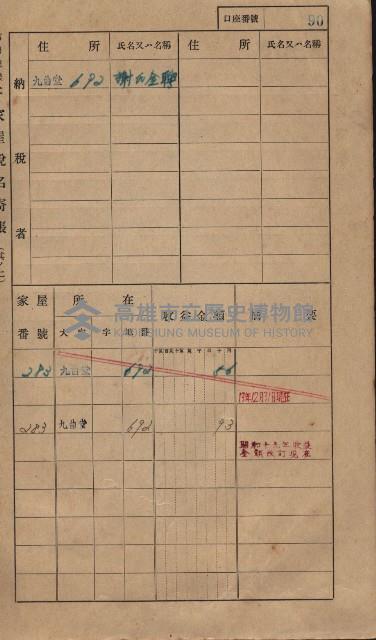 口座番號 90
家屋稅名寄帳
納稅者
住所 氏名又ハ名稱 住所 氏名又ハ名稱
九曲堂 692 謝氏金聯
家屋番號 所在 收益金額 摘要
大字 字 地番
283 九曲堂 692 66
13年12月31日現在
283 九曲堂 692 93
昭和十三年收益
金額改訂現在
高雄市立歷史博物館
KAOHSIUNG MUSEUM OF HISTORY